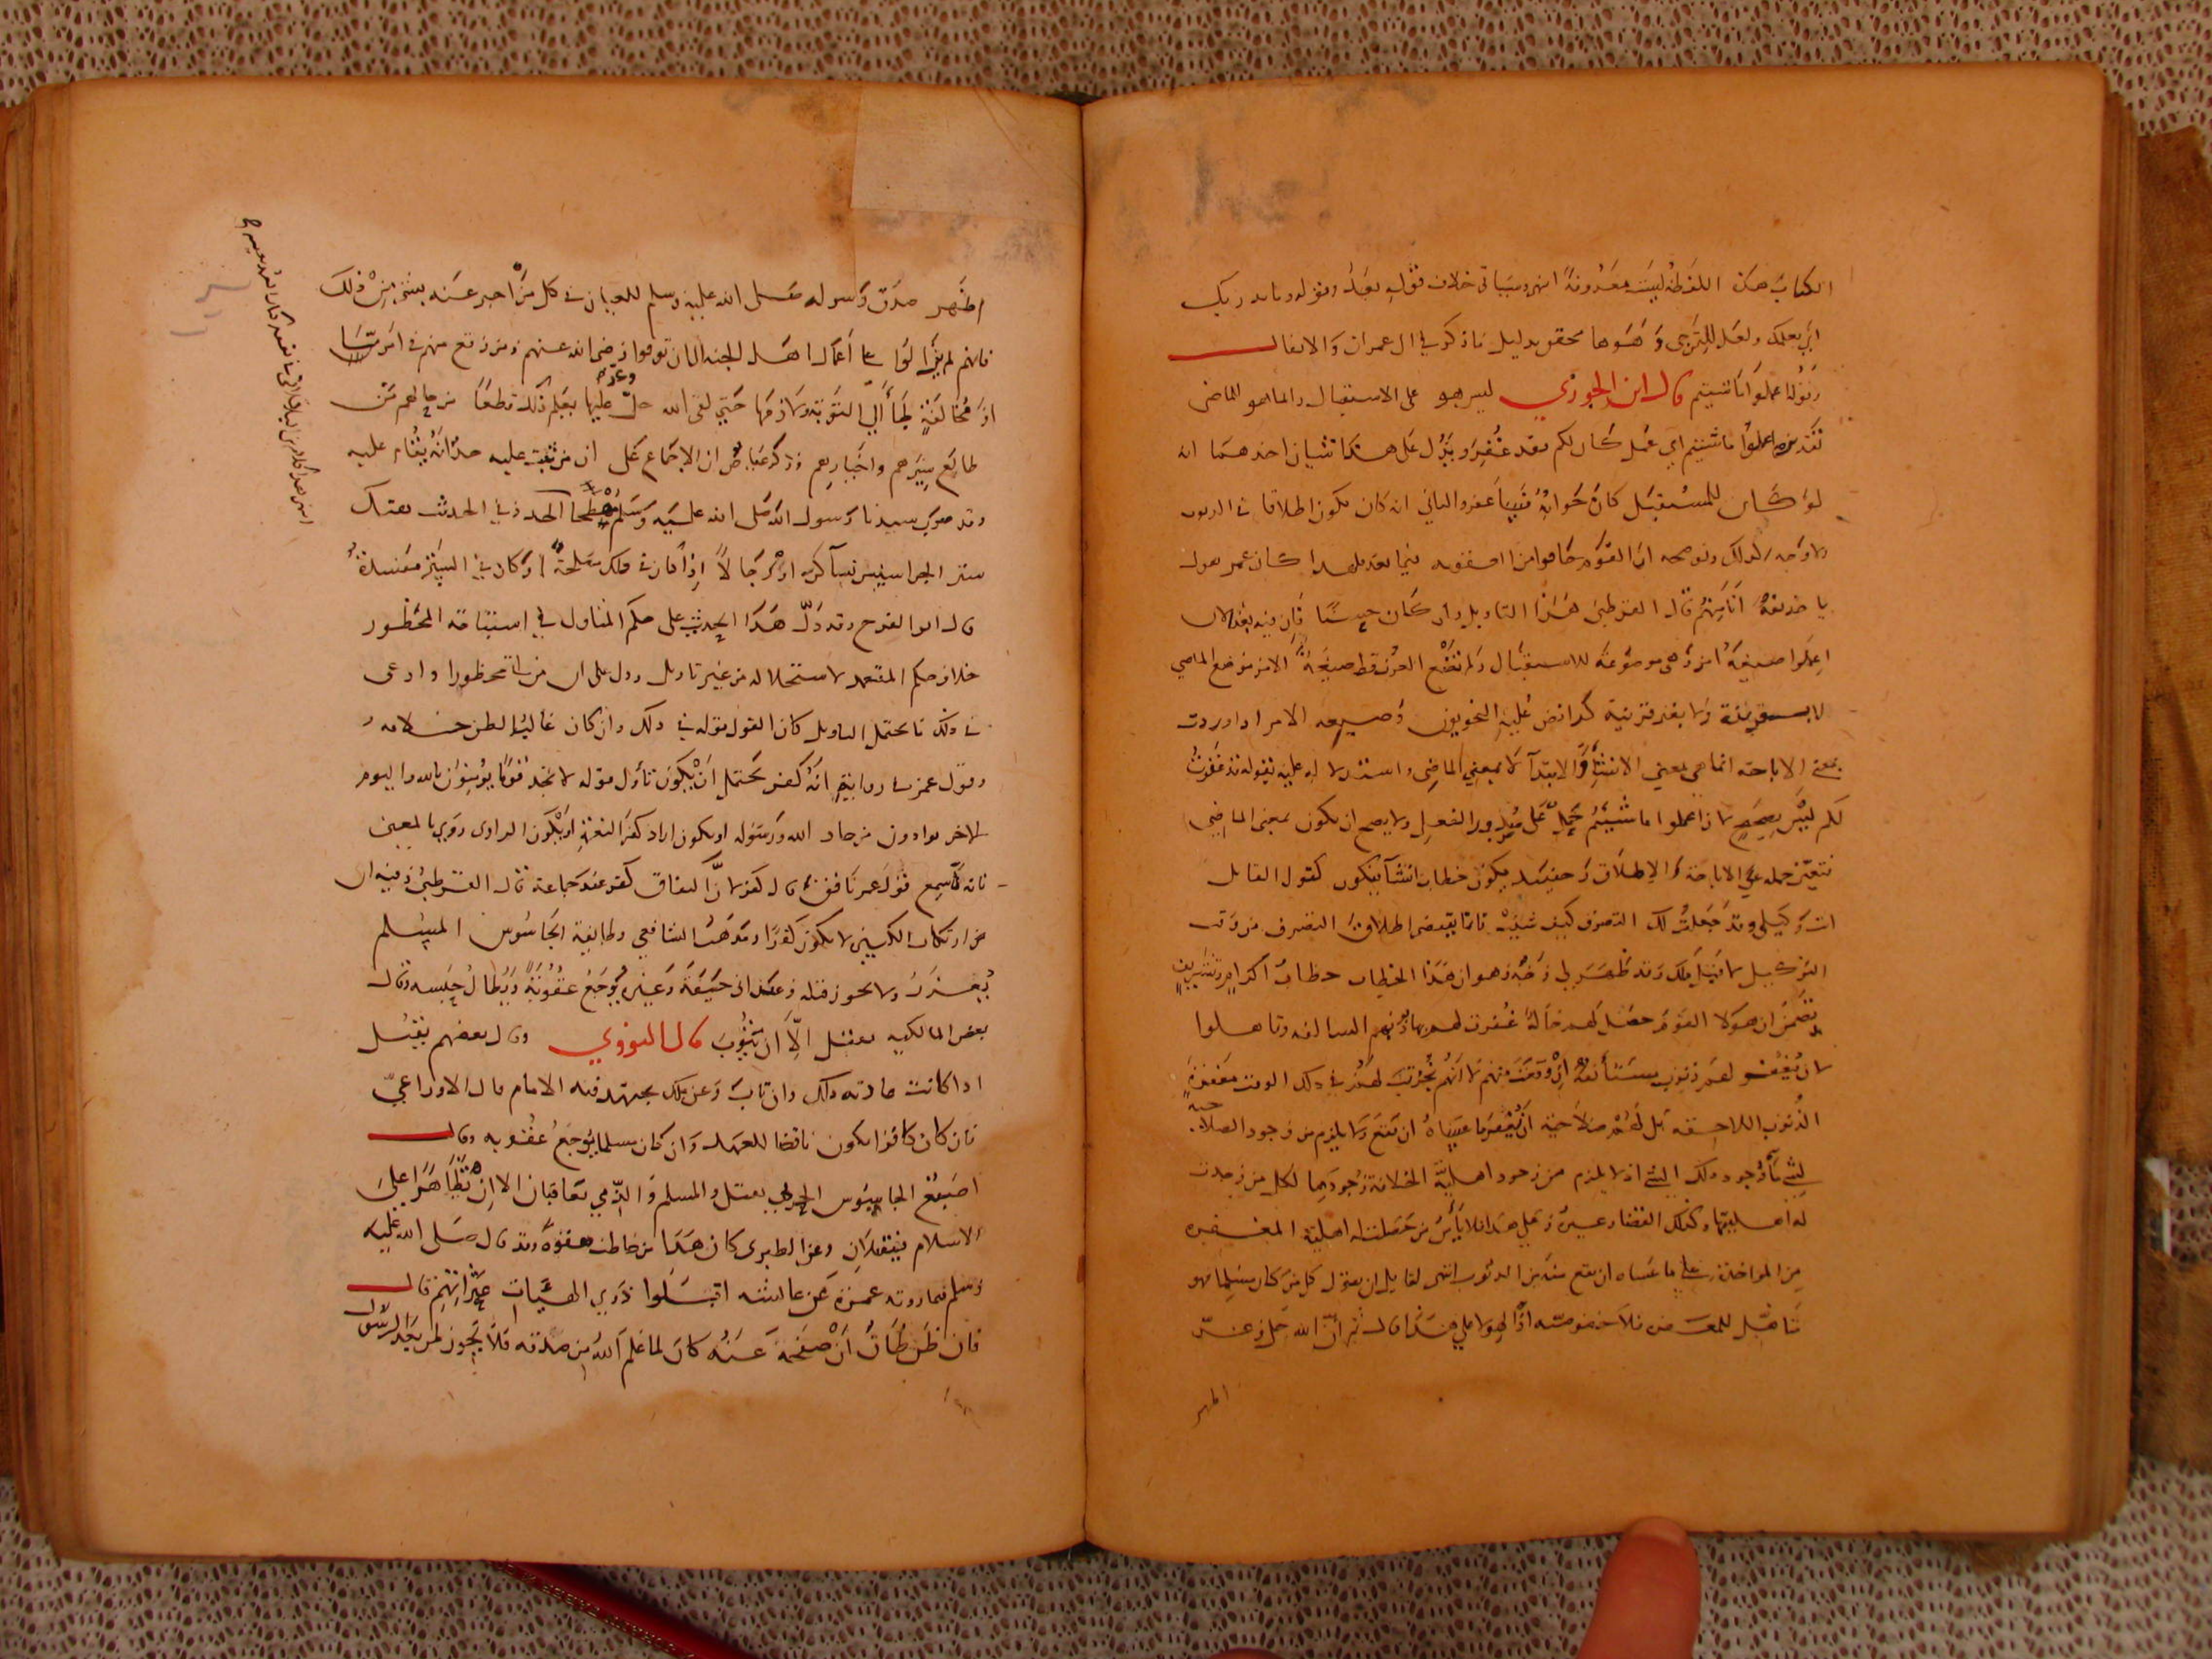 الكتاب هذه اللفظة ليست معروفة انتهى وسياتي خلاف قوله بعد وقوله وما يدريك
اي يعلمك ولعل للترجي وهو هنا محقق بدليل ما ذكر في ال عمران والانفال
وقوله اعملوا ما شيتم قال ابن الجوزي ليس هو على الاستقبال وانما هو الماضي
تقديره اعملوا ما شئتم اي عمل كان لكم فقد غفر ويدل على هذا شيان احدهما انه
لو كان للمستقبل كان جوابه فسيغفر والثاني انه كان يكون اطلاقا في الذنوب
ولا وجه لذلك ويوضحه ان القوم خافوا من العقوبة فيما بعد فلهذا كان عمر يقول
يا حذيفة انا منهم قال القرطبي هذا التاويل وان كان حسنا فان فيه بعد لان
اعملوا صيغة امر وهي موضوعة للاستقبال ولم تضع العرب قط صيغة الامر موضع الماضي
لا بقرينة ولا بغير قرينة كذا نص عليه النحويون وصيغة الامر اذا وردت
بمعنى الاباحة انما هي بمعنى الانشاء والابتداء لا بمعنى الماضي واستدلاله عليه بقوله قد غفرت
لكم ليس بصحيح لان اعملوا ما شئتم محمل على الفعل ولا يصح ان يكون بمعنى الماضي
فتعين حمله على الاباحة والاطلاق وحينئذ يكون خطاب انشاء فيكون كقول القايل
انت وكيلي وقد جعلت لك التصرف كيف شيت فانما يقتضي اطلاق التصرف من وقت
التوكيل لا قبل ذلك وقد ظهر لي وجه وهو ان هذا الخطاب خطاب اكرام وتشريف
يتضمن ان هولا القوم حصل لهم حالة غفرت لهم بها ذنوبهم السالفة وتاهلوا
لان يغفر لهم ذنوب مستأنفة ان وقعت منهم لا انهم نجزت لهم في ذلك الوقت مغفرة
الذنوب اللاحقة بل لهم صلاحية ان يغفر ما عساه ان يقع ولا يلزم من وجود الصلاحية
لشي ما وجود ذلك الشي اذ لا يلزم من وجود اهلية الخلافة وجودها لكل من وجدت
له اهليتها وكذلك القضاء وغيره وعلى هذا فلا يأمن من حصلت له اهلية المغفرة
من المواخذة على ما عساه ان يقع منه من الذنوب انتهى لقايل ان يقول كل من كان مسلما فهو
متاهل للمغفرة فلا خصوصية اذا لهولا على هذا قال ثم ان الله جل وعز
اظهر

اظهر صدق رسوله صلى الله عليه وسلم للعيان في كل من اخبر عنه بشي من ذلك
فانهم لم يزالوا على اعمال اهل الجنة الى ان توفوا رضي الله عنهم ومن وقع منهم في امر ما
او مخالفة لجأ الى التوبة ولازمها حتى لقى الله جل وعز عليها يعلم ذلك قطعا من حالهم من
طالع سيرهم واخبارهم وذكر عياض ان الاجماع على ان من ثبت عليه حد انه يقام عليه
وقد ضرب سيدنا رسول الله صلى الله عليه وسلم مسطحا الحد وفي الحديث هتك
ستر الجواسيس نساء كن او رجالا اذا كان في ذلك مصلحة او كان في الستر مفسدة
قال ابو الفرج وقد دل هذا الحديث على حكم المتاول في استباحة المحظور
خلاف حكم المتعمد لاستحلاله من غير تاويل ودل على ان من اتى محظورا وادعى
في ذلك ما يحتمل التاويل كان القول قوله في ذلك وان كان غالب الظن خلافه
وقول عمر في روايته انه كفر يحتمل ان يكون تاول قوله لا تجد قوما يؤمنون بالله واليوم
الاخر يوادون من حاد الله ورسوله او يكون اراد كفر النعمة او يكون الراوي روى بالمعنى
فانه لما سمع قول عمر نافق قال كفر لان النفاق كفر عند جماعة قال القرطبي وفيه ان
من ارتكاب الكبيرة لا يكون كفرا ومذهب الشافعي وطايفة الجاسوس المسلم
يعزر ولا يجوز قتله وعند ابي حنيفة وغيره يوجع عقوبة ويطال حبسه وقال
بعض المالكية يقتل الا ان يتوب قال النووي وقال بعضهم يقتل
اذا كانت عادته ذلك وان تاب وعن مالك يجتهد فيه الامام قال الاوزاعي
فان كان كافرا يكون ناقضا للعهد وان كان مسلما يوجع عقوبة وقال
اصبغ الجاسوس الحربي يقتل والمسلم والذمي يعاقبان الا ان تظاهرا على
الاسلام فيقتلان وعن الطبري كان هذا من حاطب هفوة وقد قال صلى الله عليه
وسلم فيما روته عمرة عن عائشة اقيلوا ذوي الهيات عثراتهم قال
فان ظن ظان ان صفحه عنه كان لما علم الله من صدقه فلا يجوز لمن بعد الرسول